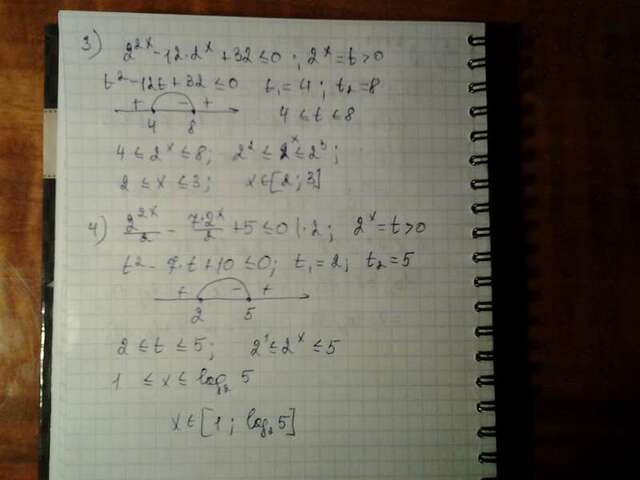 3) 2^{2x} - 12·2^x + 32 ≤ 0 ; 2^x = t > 0
t^2 - 12t + 32 ≤ 0 t_1 = 4 ; t_2 = 8
+ - +
4 8 4 ≤ t ≤ 8
4 ≤ 2^x ≤ 8; 2^2 ≤ 2^x ≤ 2^3 ;
2 ≤ x ≤ 3 ; x ∈ [2 ; 3]
4) \frac{2^{2x}}{2} - \frac{7·2^x}{2} + 5 ≤ 0 |·2 ; 2^x = t > 0
t^2 - 7·t + 10 ≤ 0; t_1 = 2; t_2 = 5
+ - +
2 5
2 ≤ t ≤ 5; 2^1 ≤ 2^x ≤ 5
1 ≤ x ≤ log_2 5
x ∈ [1 ; log_2 5]